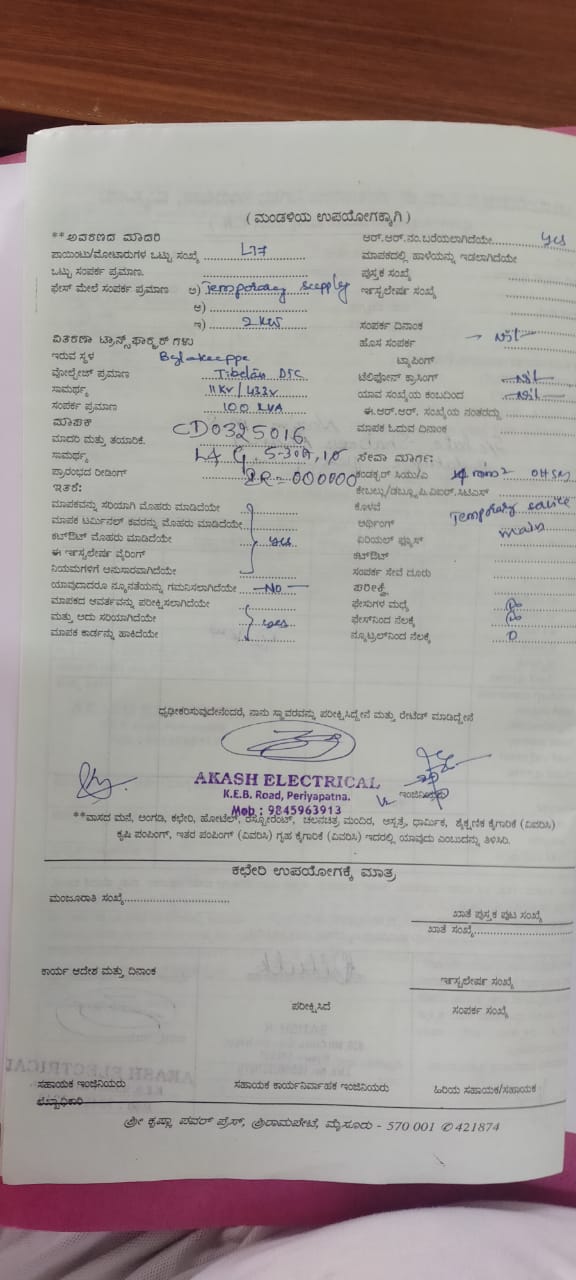 ( ಮಂಡಳಿಯ ಉಪಯೋಗಕ್ಕಾಗಿ )
**ಅವಕರಣದ ಮಾದರಿ
ಪಾಯಿಂಟು/ಮೋಟಾರುಗಳ ಒಟ್ಟು ಸಂಖ್ಯೆ
ಒಟ್ಟು ಸಂಪರ್ಕ ಪ್ರಮಾಣ.
ಫೇಸ್ ಮೇಲೆ ಸಂಪರ್ಕ ಪ್ರಮಾಣ ಅ) Temporary supply
ಆ)
ಇ) 2 KW
ವಿತರಣಾ ಟ್ರಾನ್ಸ್‌ಫಾರ್ಮರ್ ಗಳು
ಇರುವ ಸ್ಥಳ Bylakuppe
ವೋಲ್ಟೇಜ್ ಪ್ರಮಾಣ Tibetan
ಸಾಮರ್ಥ್ಯ 11KV/433V
ಸಂಪರ್ಕ ಪ್ರಮಾಣ 100 KVA
ಮಾಪಕ CD0325016
ಮಾದರಿ ಮತ್ತು ತಯಾರಿಕೆ.
ಸಾಮರ್ಥ್ಯ
ಪ್ರಾರಂಭದ ರೀಡಿಂಗ್ IR=000000
ಇತರೆ:
ಮಾಪಕವನ್ನು ಸರಿಯಾಗಿ ಮೊಹರು ಮಾಡಿದೆಯೇ
ಮಾಪಕ ಟರ್ಮಿನಲ್ ಕವರನ್ನು ಮೊಹರು ಮಾಡಿದೆಯೇ
ಕಟ್‌ಔಟ್ ಮೊಹರು ಮಾಡಿದೆಯೇ yes
ಈ ಇನ್ಸ್ಟಲೇಷನ್ ವೈರಿಂಗ್
ನಿಯಮಗಳಿಗೆ ಅನುಸಾರವಾಗಿದೆಯೇ
ಯಾವುದಾದರೂ ನ್ಯೂನತೆಯನ್ನು ಗಮನಿಸಲಾಗಿದೆಯೇ No
ಮಾಪಕದ ಆವರ್ತವನ್ನು ಪರೀಕ್ಷಿಸಲಾಗಿದೆಯೇ
ಮತ್ತು ಅದು ಸರಿಯಾಗಿದೆಯೇ yes
ಮಾಪಕ ಕಾರ್ಡನ್ನು ಹಾಕಿದೆಯೇ
ಆರ್.ಆರ್.ನಂ.ಬರೆಯಲಾಗಿದೆಯೇ yes
ಮಾಪಕದಲ್ಲಿ ಹಾಳೆಯನ್ನು ಇಡಲಾಗಿದೆಯೇ
ಪುಸ್ತಕ ಸಂಖ್ಯೆ
ಇನ್ಸ್ಟಲೇಷನ್ ಸಂಖ್ಯೆ
ಸಂಪರ್ಕ ದಿನಾಂಕ
ಹೊಸ ಸಂಪರ್ಕ Nil
ಟ್ಯಾಪಿಂಗ್
ಟೆಲಿಫೋನ್ ಕ್ರಾಸಿಂಗ್ Nil
ಯಾವ ಸಂಖ್ಯೆಯ ಕಂಬದಿಂದ Nil
ಈ.ಆರ್.ಆರ್. ಸಂಖ್ಯೆಯ ನಂತರದ್ದು
ಮಾಪಕ ಓದುವ ದಿನಾಂಕ
ಸೇವಾ ಮಾರ್ಗ:
ಕಂಡಕ್ಟರ್ ಸಿಯು/ಎ
ಕೇಬಲ್ಲು/ಡಬ್ಲ್ಯೂ.ಪಿ.ಐಆರ್.ಸಿಟಿಎಸ್
ಕೊಳವೆ Temporary service
ಅರ್ಥಿಂಗ್ main
ಏರಿಯಲ್ ಫ್ಯೂಸ್
ಕಟ್‌ಔಟ್
ಸಂಪರ್ಕ ಸೇವೆ ದೂರು
ಪರೀಕ್ಷೆ
ಫೇಸುಗಳ ಮಧ್ಯೆ
ಫೇಸ್‌ನಿಂದ ನೆಲಕ್ಕೆ
ನ್ಯೂಟ್ರಲ್‌ನಿಂದ ನೆಲಕ್ಕೆ 0
ಧೃಢೀಕರಿಸುವುದೇನೆಂದರೆ, ನಾನು ಸ್ಥಾವರವನ್ನು ಪರೀಕ್ಷಿಸಿದ್ದೇನೆ ಮತ್ತು ರೇಟೆಡ್ ಮಾಡಿದ್ದೇನೆ
AKASH ELECTRICAL
K.E.B. Road, Periyapatna.
Mob : 9845963913
ಇಂಜಿನಿಯರ್
**ವಾಸದ ಮನೆ, ಅಂಗಡಿ, ಕಛೇರಿ, ಹೋಟೆಲ್, ರೆಸ್ಟೋರೆಂಟ್, ಚಲನಚಿತ್ರ ಮಂದಿರ, ಆಸ್ಪತ್ರೆ, ಧಾರ್ಮಿಕ, ಶೈಕ್ಷಣಿಕ ಕೈಗಾರಿಕೆ (ವಿವರಿಸಿ)
ಕೃಷಿ ಪಂಪಿಂಗ್, ಇತರ ಪಂಪಿಂಗ್ (ವಿವರಿಸಿ) ಗೃಹ ಕೈಗಾರಿಕೆ (ವಿವರಿಸಿ) ಇದರಲ್ಲಿ ಯಾವುದು ಎಂಬುದನ್ನು ತಿಳಿಸಿರಿ.
ಕಛೇರಿ ಉಪಯೋಗಕ್ಕೆ ಮಾತ್ರ
ಮಂಜೂರಾತಿ ಸಂಖ್ಯೆ
ಖಾತೆ ಪುಸ್ತಕ ಪುಟ ಸಂಖ್ಯೆ
ಖಾತೆ ಸಂಖ್ಯೆ
ಕಾರ್ಯ ಆದೇಶ ಮತ್ತು ದಿನಾಂಕ
ಇನ್ಸ್ಟಲೇಷನ್ ಸಂಖ್ಯೆ
ಪರೀಕ್ಷಿಸಿದೆ
ಸಂಪರ್ಕ ಸಂಖ್ಯೆ
ಸಹಾಯಕ ಇಂಜಿನಿಯರು
ಸಹಾಯಕ ಕಾರ್ಯನಿರ್ವಾಹಕ ಇಂಜಿನಿಯರು
ಹಿರಿಯ ಸಹಾಯಕ/ಸಹಾಯಕ
ಲೆಖ್ಖಾಧಿಕಾರಿ
ಶ್ರೀ ಕೃಷ್ಣಾ ಪವರ್ ಪ್ರೆಸ್, ಶ್ರೀರಾಮಪೇಟೆ, ಮೈಸೂರು - 570 001 ✆ 421874